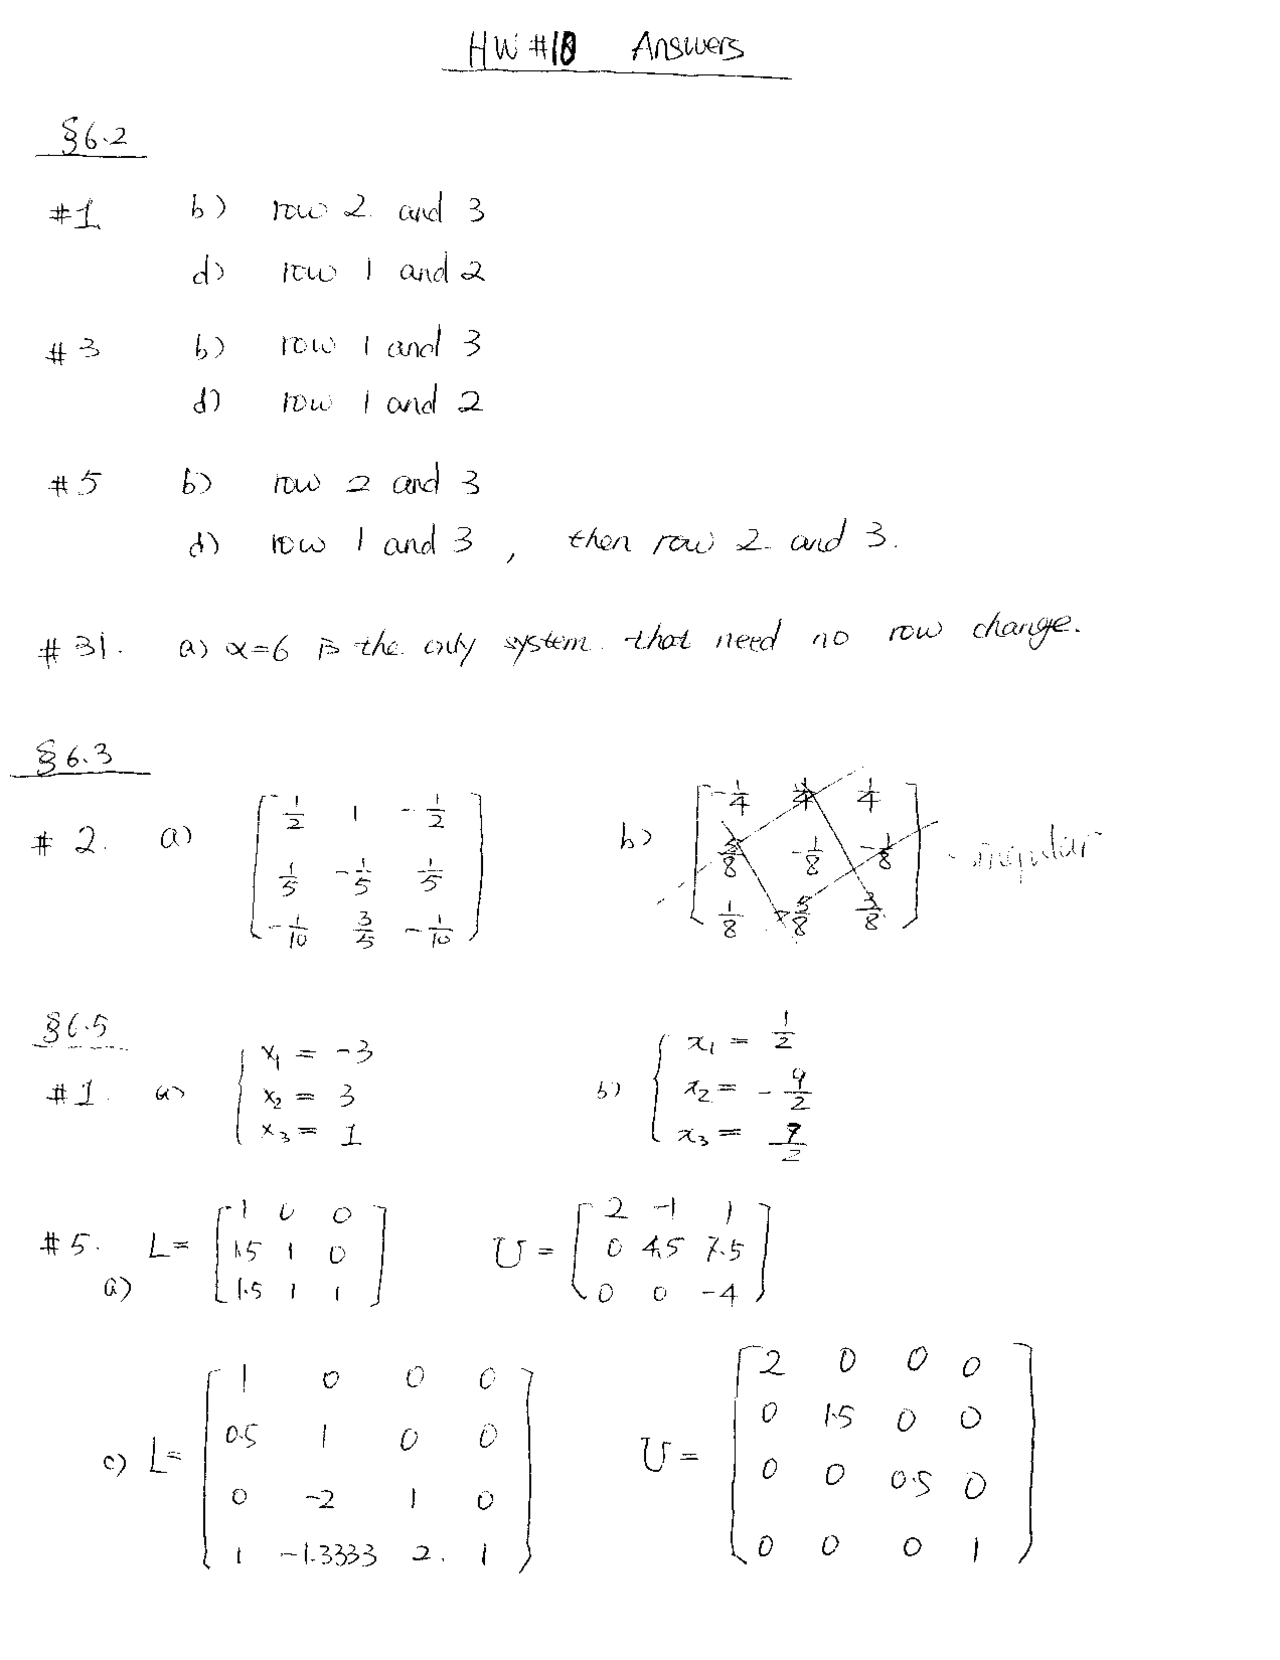 HW #10 Answers
§6.2
#1. b) row 2 and 3
d) row 1 and 2
#3 b) row 1 and 3
d) row 1 and 2
#5 b) row 2 and 3
d) row 1 and 3, then row 2 and 3.
#31. a) α=6 is the only system that need no row change.
§6.3
#2. a) [ 1/2 1 -1/2 ; 1/5 -1/5 1/5 ; -1/10 3/5 -1/10 ] b) singular
§6.5
#1. a) { x₁ = -3 b) { x₁ = 1/2
x₂ = 3 x₂ = -9/2
x₃ = 1 x₃ = 7/2
#5. L = [ 1 0 0 ; 1.5 1 0 ; 1.5 1 1 ] U = [ 2 -1 1 ; 0 4.5 7.5 ; 0 0 -4 ]
a)
c) L = [ 1 0 0 0 ; 0.5 1 0 0 ; 0 -2 1 0 ; 1 -1.3333 2. 1 ] U = [ 2 0 0 0 ; 0 1.5 0 0 ; 0 0 0.5 0 ; 0 0 0 1 ]